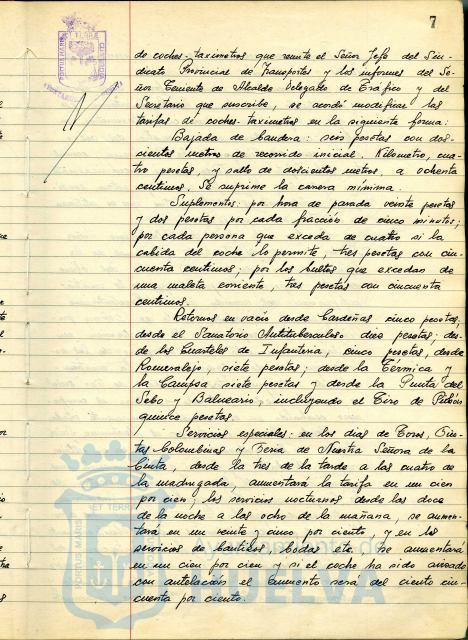 7
de coches-taximetros que remite el Señor Jefe del Sin-
dicato Provincial de Transportes y los informes del Se-
ñor Teniente de Alcalde Delegado de Tráfico y del
Secretario que suscribe, se acordó modificar las
tarifas de coches-taximetros en la siguiente forma:
Bajada de bandera: seis pesetas con dos-
cientos metros de recorrido inicial. Kilometro, cua-
tro pesetas y salto de doscientos metros, a ochenta
centimos. Se suprime la carrera minima.
Suplementos: por hora de parada veinte pesetas
y dos pesetas por cada fracción de cinco minutos;
por cada persona que exceda de cuatro si la
cabida del coche lo permite, tres pesetas con cin-
cuenta centimos; por los bultos que excedan de
una maleta corriente, tres pesetas con cincuenta
centimos.
Retornos en vacio desde Cardeñas cinco pesetas;
desde el Sanatorio Antituberculoso diez pesetas; des-
de los Cuarteles de Infanteria, cinco pesetas, desde
Romeralejo, siete pesetas; desde la Térmica y
la Campsa siete pesetas y desde la Punta del
Sebo y Balneario, incluyendo el Tiro de Pichón
quince pesetas.
Servicios especiales: en los dias de Toros, Fies-
tas Colombinas y Feria de Nuestra Señora de la
Cinta, desde la tres de la tarde a las cuatro de
la madrugada, aumentará la tarifa en un cien
por cien; los servicios nocturnos desde las doce
de la noche a las ocho de la mañana, se aumen-
tará en un veinte y cinco por ciento y en los
servicios de bautizos, bodas etc. se aumentará
en un cien por cien y si el coche ha sido avisado
con antelación el aumento será del ciento cin-
cuenta por ciento.
PORTUS MARIS
ET TERRAE
CUSTODIA
HUELVA